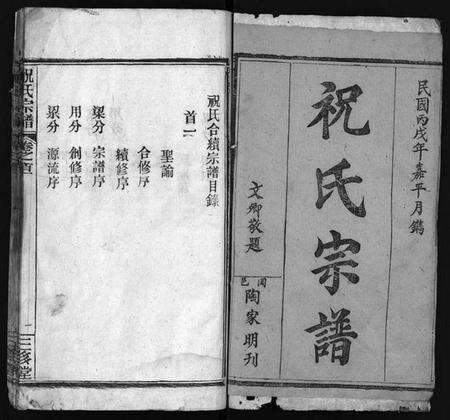 民國丙戌年嘉平月鐫
祝氏宗譜
文卿敬題
閏邑
陶家明刊
祝氏合續宗譜目錄
首一
聖諭
合修序
續修序
梁分 宗譜序
用分 創修序
分 源流序
祝氏宗譜 卷之首
三修堂